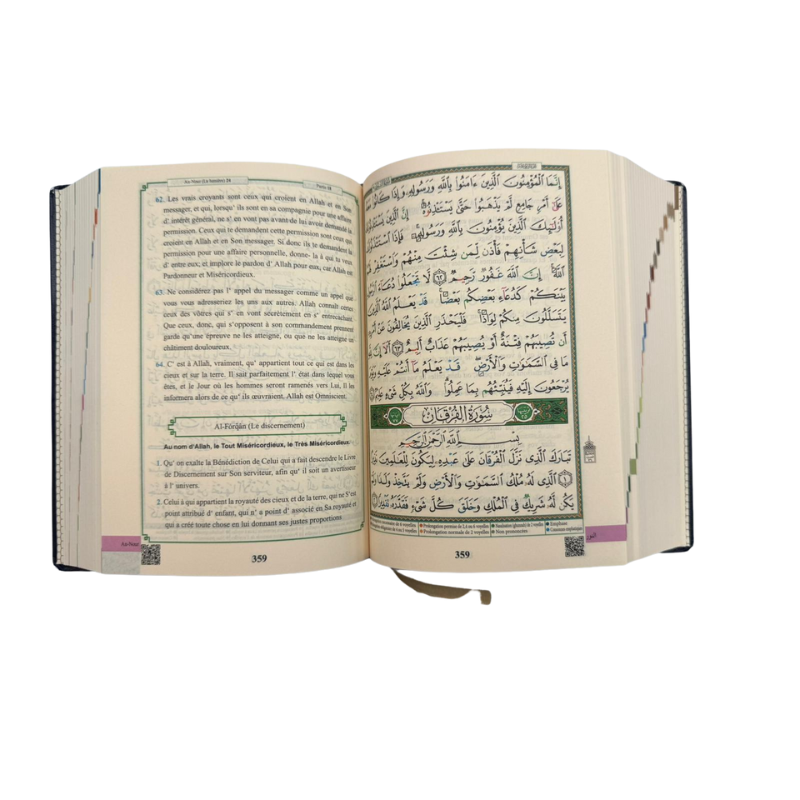 An-Nour (La lumière) 24
Partie 18
62. Les vrais croyants sont ceux qui croient en Allah et en Son
messager, et qui, lorsqu' ils sont en sa compagnie pour une affaire
d' intérêt général, ne s' en vont pas avant de lui avoir demandé la
permission. Ceux qui te demandent cette permission sont ceux qui
croient en Allah et en Son messager. Si donc ils te demandent la
permission pour une affaire personnelle, donne- la à qui tu veux
d' entre eux; et implore le pardon d' Allah pour eux, car Allah est
Pardonneur et Miséricordieux.
63. Ne considérez pas l' appel du messager comme un appel que
vous vous adresseriez les uns aux autres. Allah connaît certes
ceux des vôtres qui s' en vont secrètement en s' entrecachant.
Que ceux, donc, qui s'opposent à son commandement prennent
garde qu'une épreuve ne les atteigne, ou que ne les atteigne un
châtiment douloureux.
64. C' est à Allah, vraiment, qu' appartient tout ce qui est dans les
cieux et sur la terre. Il sait parfaitement l' état dans lequel vous
êtes, et le Jour où les hommes seront ramenés vers Lui, Il les
informera alors de ce qu' ils œuvraient. Allah est Omniscient.
Al-Forqân (Le discernement)
Au nom d'Allah, le Tout Miséricordieux, le Très Miséricordieux.
1. Qu' on exalte la Bénédiction de Celui qui a fait descendre le Livre
de Discernement sur Son serviteur, afin qu' il soit un avertisseur
à l' univers.
2. Celui à qui appartient la royauté des cieux et de la terre, qui ne S'est
point attribué d' enfant, qui n' a point d' associé en Sa royauté et
qui a créé toute chose en lui donnant ses justes proportions.
359
An-Nour
إِنَّمَا الْمُؤْمِنُونَ الَّذِينَ ءَامَنُوا بِاللَّهِ وَرَسُولِهِ وَإِذَا كَانُوا
عَلَىٰ أَمْرٍ جَامِعٍ لَّمْ يَذْهَبُوا حَتَّىٰ يَسْتَـْٔذِنُوهُ إِنَّ الَّذِينَ
أُولَٰئِكَ الَّذِينَ يُؤْمِنُونَ بِاللَّهِ وَرَسُولِهِ فَإِذَا
لِبَعْضِ شَأْنِهِمْ فَأْذَن لِّمَن شِئْتَ مِنْهُمْ وَاسْتَغْفِرْ
اللَّهَ إِنَّ اللَّهَ غَفُورٌ رَّحِيمٌ ٦٢ لَّا تَجْعَلُوا دُعَاءَ
بَيْنَكُمْ كَدُعَاءِ بَعْضِكُم بَعْضًا قَدْ يَعْلَمُ اللَّهُ الَّذِينَ
يَتَسَلَّلُونَ مِنكُمْ لِوَاذًا فَلْيَحْذَرِ الَّذِينَ يُخَالِفُونَ عَنْ
أَن تُصِيبَهُمْ فِتْنَةٌ أَوْ يُصِيبَهُمْ عَذَابٌ أَلِيمٌ ٦٣ أَلَا إِنَّ
مَا فِي السَّمَٰوَٰتِ وَالْأَرْضِ قَدْ يَعْلَمُ مَا أَنتُمْ عَلَيْهِ
يُرْجَعُونَ إِلَيْهِ فَيُنَبِّئُهُم بِمَا عَمِلُوا وَاللَّهُ بِكُلِّ شَىْءٍ
سُورَةُ الْفُرْقَانِ
بِسْمِ اللَّهِ الرَّحْمَٰنِ الرَّحِيمِ
تَبَارَكَ الَّذِي نَزَّلَ الْفُرْقَانَ عَلَىٰ عَبْدِهِ لِيَكُونَ لِلْعَٰلَمِينَ
١ الَّذِي لَهُ مُلْكُ السَّمَٰوَٰتِ وَالْأَرْضِ وَلَمْ يَتَّخِذْ وَلَدًا
يَكُن لَّهُ شَرِيكٌ فِي الْمُلْكِ وَخَلَقَ كُلَّ شَىْءٍ فَقَدَّرَهُ
359
النور